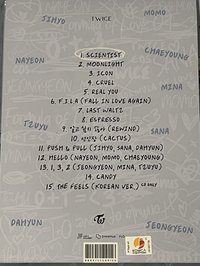 TWICE
JIHYO
MOMO
NAYEON
CHAEYOUNG
1. SCIENTIST
2. MOONLIGHT
3. ICON
4. CRUEL
5. REAL YOU
6. F.I.L.A (FALL IN LOVE AGAIN)
7. LAST WALTZ
8. ESPRESSO
9. 알고 싶지 않아 (REWIND)
10. 선인장 (CACTUS)
11. PUSH & PULL (JIHYO, SANA, DAHYUN)
12. HELLO (NAYEON, MOMO, CHAEYOUNG)
13. 1, 3, 2 (JEONGYEON, MINA, TZUYU)
14. CANDY
15. THE FEELS (KOREAN VER.) CD ONLY
MINA
TZUYU
SANA
DAHYUN
JEONGYEON